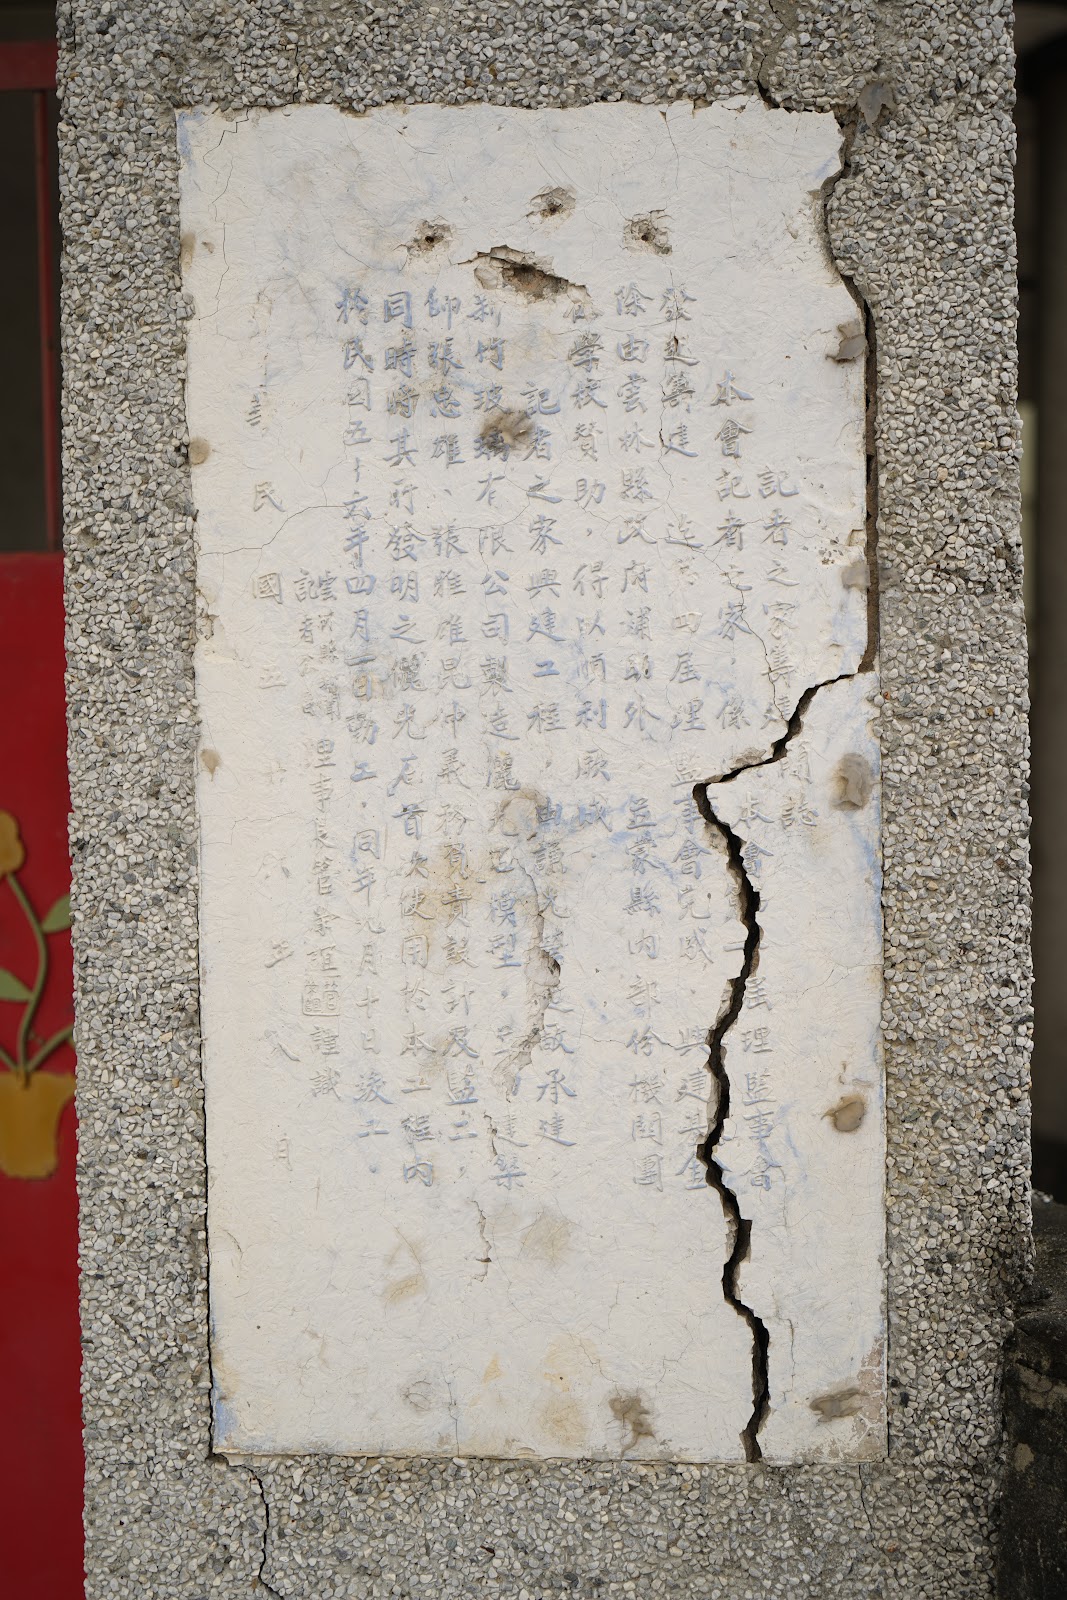 記者之家籌建簡誌
本會記者之家,係本會第一屆理監事會
發起籌建、迄第四屆理監事會完成、興建基金
除由雲林縣政府補助外、並蒙縣內部份機關團
體學校贊助,得以順利厥成
記者之家興建工程,由謙光營造廠承建
新竹玻璃有限公司製造儷光石模型,至建築
師張忠雄、張雅雄昆仲義務負責設計及監工,
同時將其所發明之儷光石首次使用於本工程內
於民國五十六年四月一日動工.同年九月十日竣工.
雲林縣 記者公會 理事長管 謹識
華民國五十六年八月